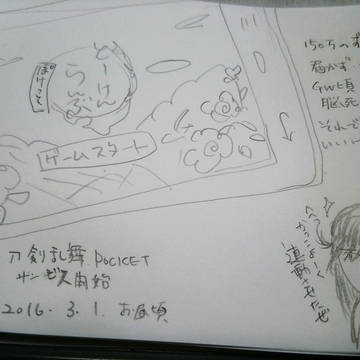 とーけん
らんぶ
ぽけっと
ゲームスタート
刀剣乱舞 POCKET
サービス開始
2016.3.1. お昼頃
150万の
届かず
GW頃
脳死
それで
いい
かっこよく
連動させたぜ